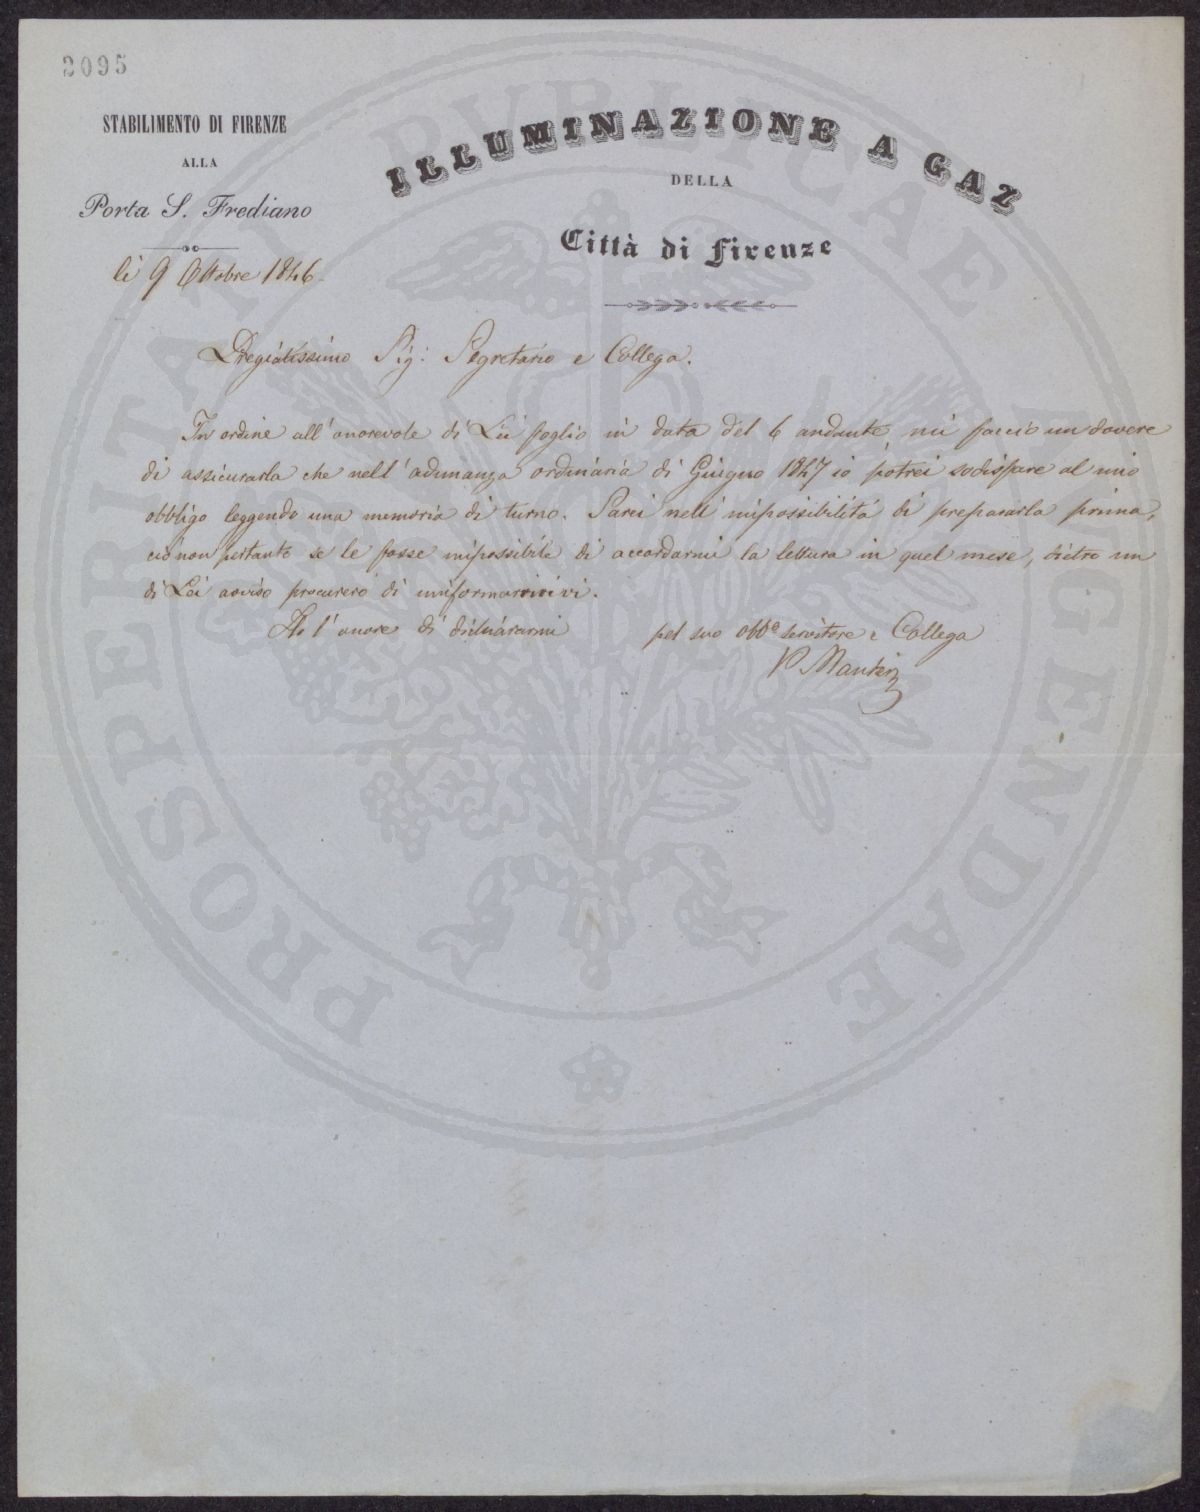 2095
STABILIMENTO DI FIRENZE
ALLA
Porta S. Frediano
li 9 Ottobre 1846
ILLUMINAZIONE A GAZ
DELLA
Città di Firenze
Pregiatissimo Sig: Segretario e Collega.
In ordine all'onorevole di Lei foglio in data del 6 andante, mi faccio un dovere
di assicurarla che nell'adunanza ordinaria di Giugno 1847 io potrei sodisfare al mio
obbligo leggendo una memoria di turno. Sarei nell'impossibilità di prepararla prima,
ciò non pertanto se le fosse impossibile di accordarmi la lettura in quel mese, dietro un
di Lei avviso procurerò di uniformarmivi.
Ho l'onore di dichiararmi pel suo obbo servitore e Collega
V Manteri
PROSPERITATI PVBLICAE AVGENDAE